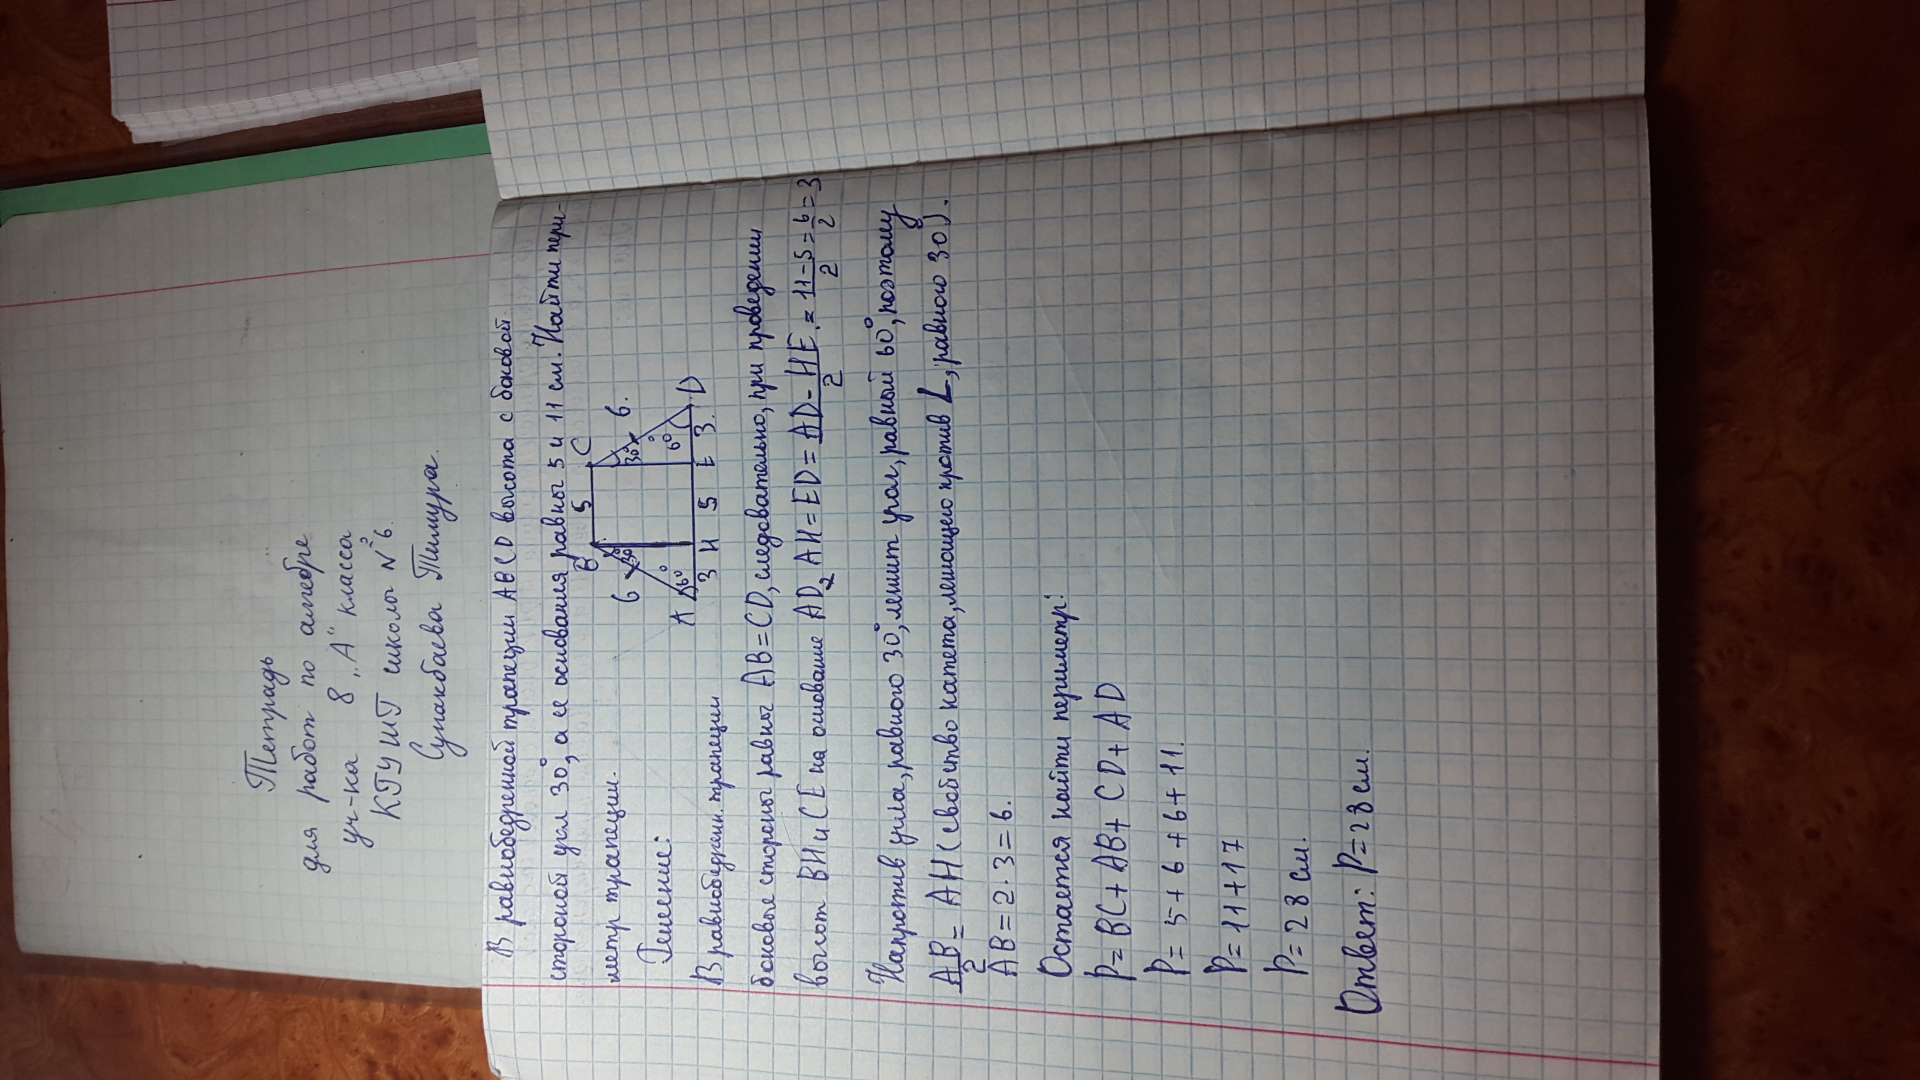 Тетрадь
для работ по алгебре
уч-ка 8 „А“ класса
КГУ ШГ школы №6.
Тимура.
В равнобедренной трапеции ABCD высота с боковой
стороной угл 30°, а ее основания равны 5 и 11 см. Найти пери-
метр трапеции.
B 5 C
6 30° 30° 6.
60° 60°
A 3 H 5 E 3. D
Решение:
В равнобедрен. трапеции
боковые стороны равны AB=CD, следовательно, при проведении
высот BH и CE на основание AD, AH=ED= AD-HE/2 = 11-5/2 = 6/2 = 3
Напротив угла, равного 30°, лежит угол, равный 60°, поэтому
AB/2 = AH (свойство катета, лежащего против L, равного 30).
AB=2·3=6.
Остается найти периметр:
P= BC+AB+CD+AD
P= 5+6+6+11.
P= 11+17
P=28 см.
Ответ: P=28 см.